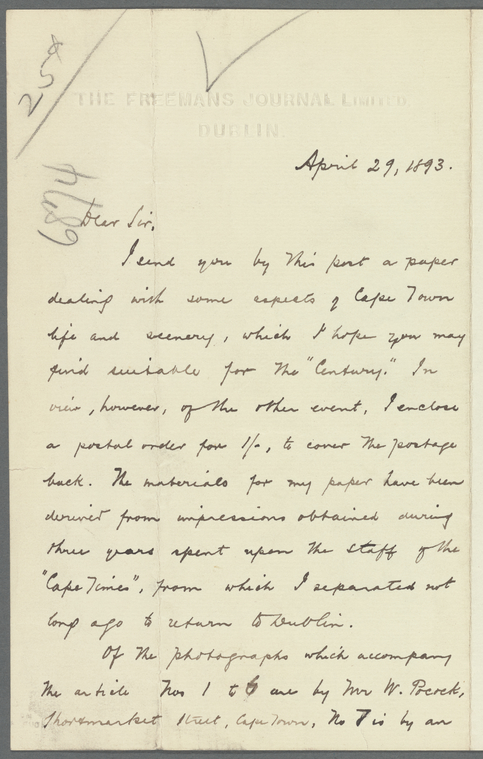 25*
THE FREEMANS JOURNAL LIMITED
DUBLIN.
April 29, 1893.
Dear Sir,
I send you by this post a paper
dealing with some aspects of Cape Town
life and scenery, which I hope you may
find suitable for the "Century." In
view, however, of the other event, I enclose
a postal order for 1/-, to cover the postage
back. The materials for my paper have been
derived from impressions obtained during
three years spent upon the staff of the
"Cape Times", from which I separated not
long ago to return to Dublin.
Of the photographs which accompany
the article Nos 1 to 6 are by Mr W. Pocock,
Shortmarket Street, Cape Town, No 7 is by an